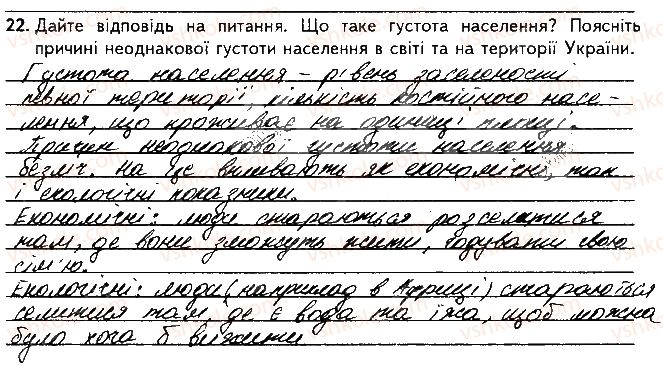 22. Дайте відповідь на питання. Що таке густота населення? Поясніть
причині неоднакової густоти населення в світі та на території України.
Густота населення – рівень заселеності
певної території, кількість постійного насе-
лення, що проживає на одиниці площі.
Причин неоднакової густоти населення
безліч. На це впливають як економічні, так
і екологічні показники.
Економічні: люди стараються розселитися
там, де вони зможуть жити, годувати свою
сім'ю.
Екологічні: люди (наприклад в Африці) стараються
селитися там, де є вода та їжа, щоб можна
було хоча б вижити